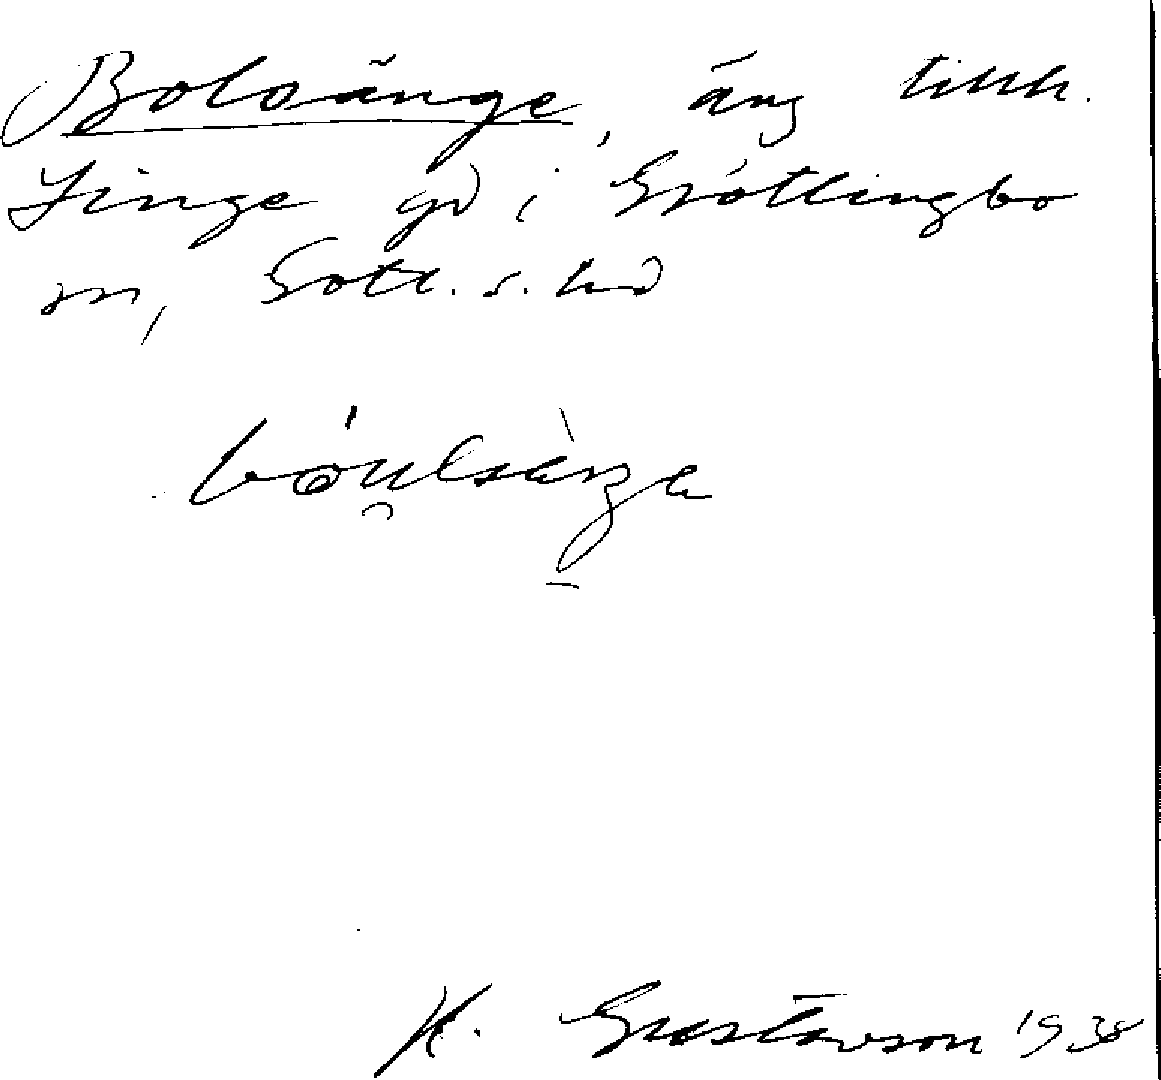 Bolsänge, äng tillh.
Jinge gd i Grötlingbo
sn, Gotl. s. hd
H. Gustavson 1938